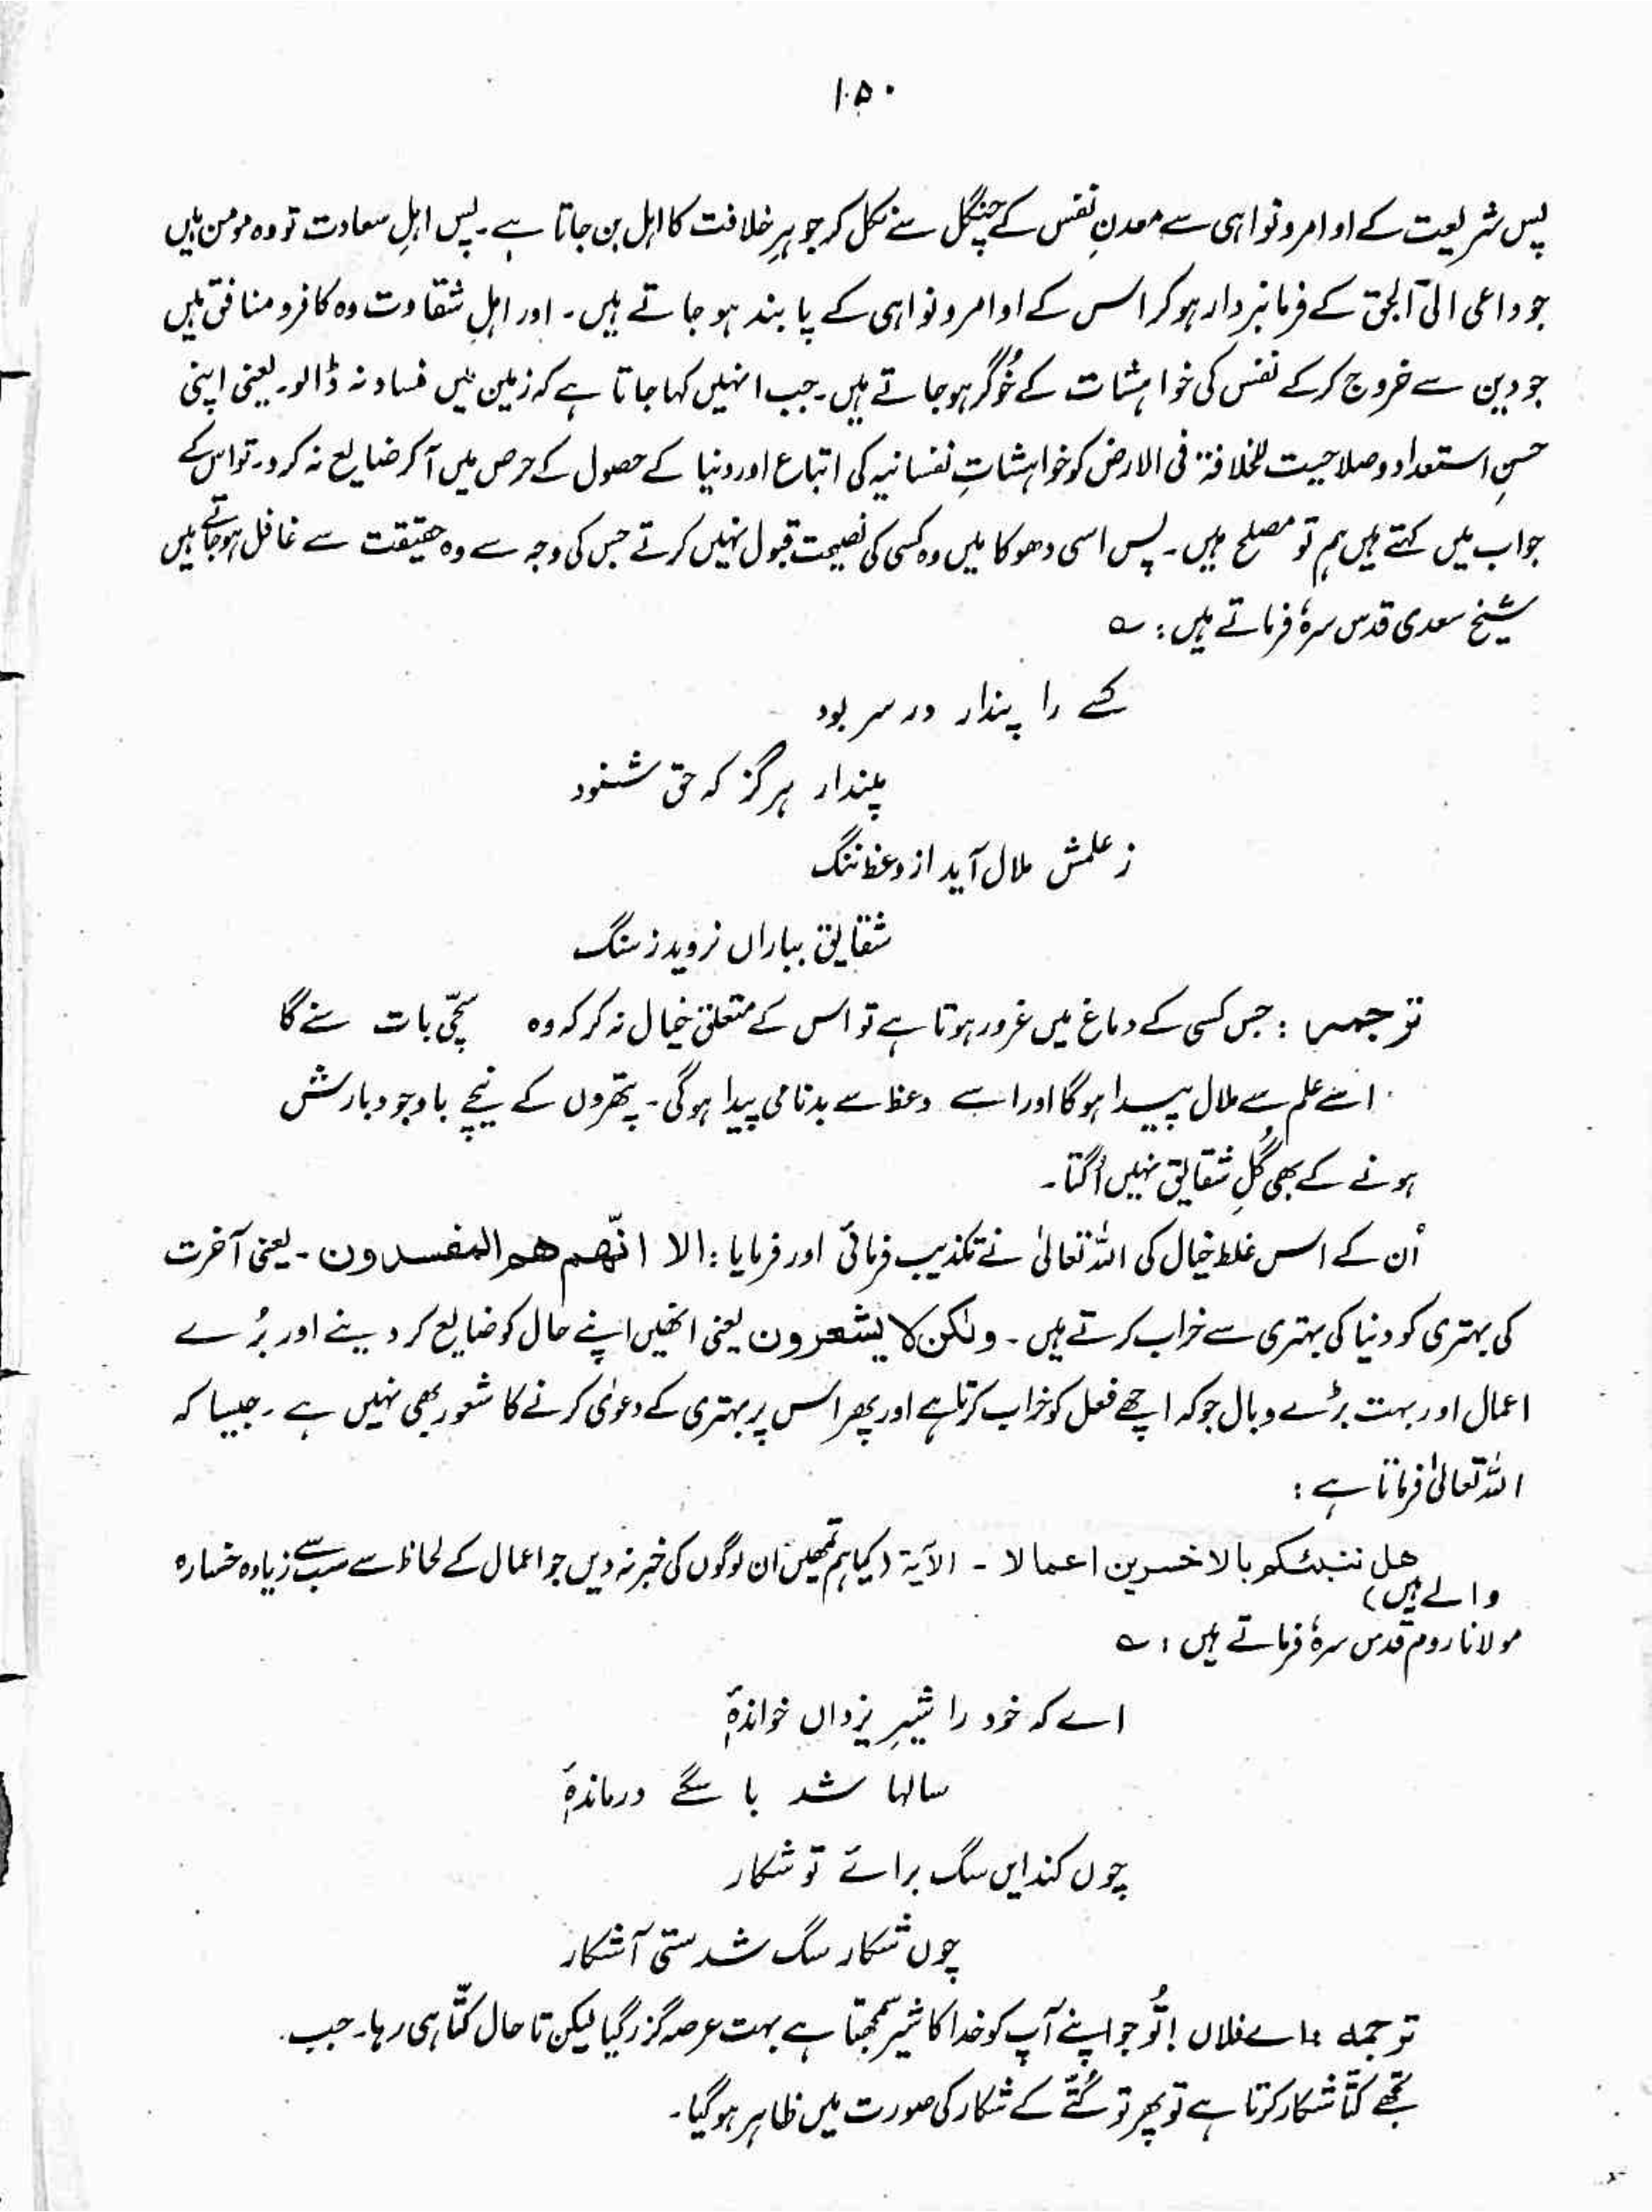 ١٥٠
پس شریعت کے اوامر و نواہی سے معدنِ نفس کے چنگل سے نکل کر جوہرِ خلافت کا اہل بن جاتا ہے۔ پس اہلِ سعادت تو وہ مومن ہیں
جو داعی الی الحق کے فرمانبردار ہو کر اس کے اوامر و نواہی کے پابند ہو جاتے ہیں۔ اور اہلِ شقاوت وہ کافر و منافق ہیں
جو دین سے خروج کر کے نفس کی خواہشات کے خُوگر ہو جاتے ہیں۔ جب انہیں کہا جاتا ہے کہ زمین میں فساد نہ ڈالو۔ یعنی اپنی
حسنِ استعداد و صلاحیت للخلافۃ فی الارض کو خواہشاتِ نفسانیہ کی اتباع اور دنیا کے حصول کے حرص میں آ کر ضایع نہ کرو۔ تو اس کے
جواب میں کہتے ہیں ہم تو مصلح ہیں۔ پس اسی دھوکا میں وہ کسی کی نصیحت قبول نہیں کرتے جس کی وجہ سے وہ حقیقت سے غافل ہو جاتے ہیں
شیخ سعدی قدس سرہٗ فرماتے ہیں: ؎
کسے را پندار در سر بود
پندار ہرگز کہ حق شنود
ز علمش ملال آید از وعظ ننگ
شقایق بباراں نروید ز سنگ
ترجمہ : جس کسی کے دماغ میں غرور ہوتا ہے تو اس کے متعلق خیال نہ کر کہ وہ سچّی بات سنے گا
اسے علم سے ملال پیدا ہوگا اور اسے وعظ سے بدنامی پیدا ہوگی۔ پتھروں کے نیچے باوجود بارش
ہونے کے بھی گُلِ شقایق نہیں اُگتا۔
اُن کے اس غلط خیال کی اللہ تعالیٰ نے تکذیب فرمائی اور فرمایا : الا انّھم ھم المفسدون۔ یعنی آخرت
کی بہتری کو دنیا کی بہتری سے خراب کرتے ہیں۔ ولٰکن لا یشعرون یعنی انھیں اپنے حال کو ضایع کر دینے اور بُرے
اعمال اور بہت بڑے وبال جو کہ اچھے فعل کو خراب کرتا ہے اور پھر اس پر بہتری کے دعویٰ کرنے کا شعور بھی نہیں ہے۔ جیسا کہ
اللہ تعالیٰ فرماتا ہے :
ھل ننبئکم بالاخسرین اعمالا ۔ الآیۃ (کیا ہم تمھیں ان لوگوں کی خبر نہ دیں جو اعمال کے لحاظ سے سب سے زیادہ خسارہ
والے ہیں)
مولانا روم قدس سرہٗ فرماتے ہیں : ؎
اے کہ خود را شیرِ یزداں خواندۂ
سالہا شد با سگے درماندۂ
چوں کند ایں سگ برائے تو شکار
چوں شکار سگ شدستی آشکار
ترجمہ : اے فلاں ! تُو جو اپنے آپ کو خدا کا شیر سمجھتا ہے بہت عرصہ گزر گیا لیکن تا حال کتّا ہی رہا۔ جب
تجھے کتّا شکار کرتا ہے تو پھر تو کُتّے کے شکار کی صورت میں ظاہر ہو گیا۔